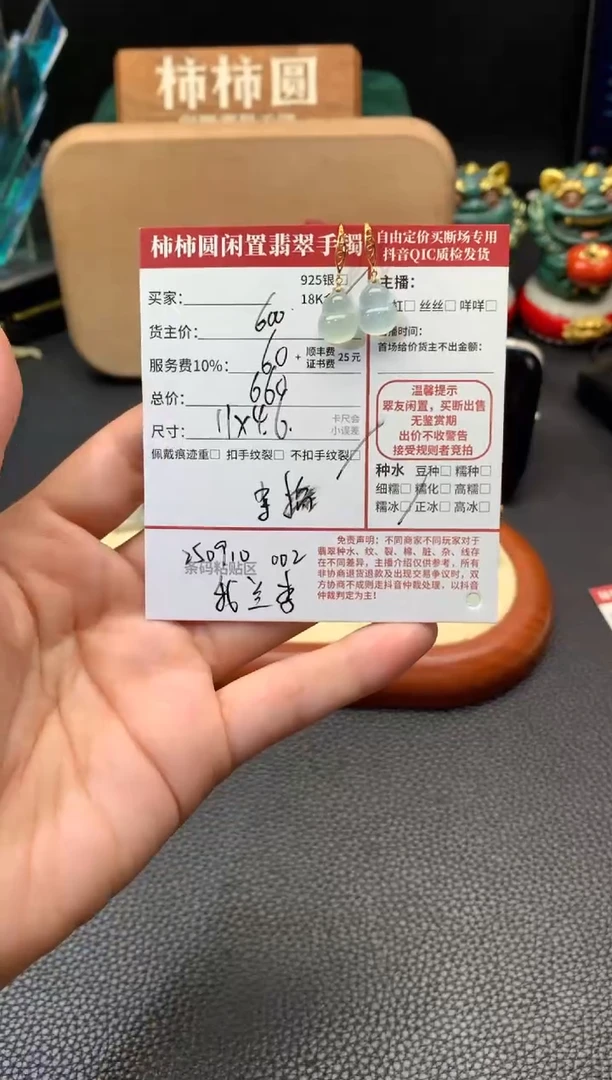 柿柿圆
柿柿圆闲置翡翠手镯
自由定价买断场专用
抖音QIC质检发货
925银
18K
买家：
货主价：600
服务费10%：60 + 顺丰费 证书费 25元
总价：
尺寸：11x4.6
卡尺会
小误差
佩戴痕迹重□ 扣手纹裂□ 不扣手纹裂□
250910 002
条码粘贴区
主播：
红□ 丝丝□ 咩咩□
播时间：
首场给价货主不出金额：
温馨提示
翠友闲置，买断出售
无鉴赏期
出价不收警告
接受规则者竞拍
种水 豆种□ 糯种□
细糯□ 糯化□ 高糯□
糯冰□ 正冰□ 高冰□
免责声明：不同商家不同玩家对于
翡翠种水、纹、裂、棉、脏、杂、线存
在不同差异，主播介绍仅供参考，所有
非协商退货退款及出现交易争议时，双
方协商不成则走抖音仲裁处理，以抖音
仲裁判定为主！